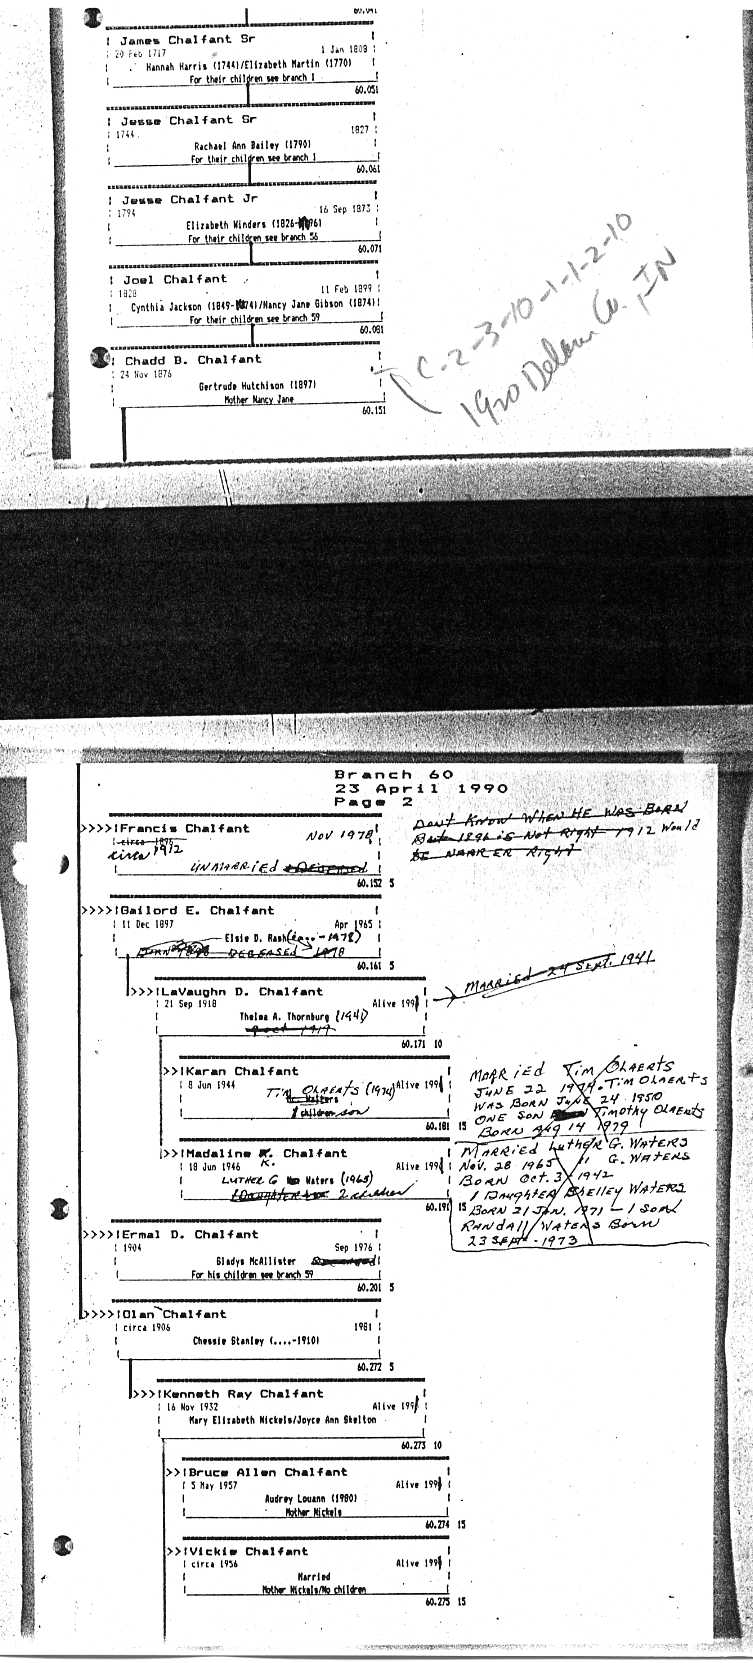 60.041
James Chalfant Sr
20 Feb 1717 1 Jan 1808
Hannah Harris (1744)/Elizabeth Martin (1770)
For their children see branch 1
60.051
Jesse Chalfant Sr
1744 1827
Rachael Ann Bailey (1790)
For their children see branch 1
60.061
Jesse Chalfant Jr
1794 16 Sep 1873
Elizabeth Winders (1826-96)
For their children see branch 56
60.071
Joel Chalfant
1828 11 Feb 1899
Cynthia Jackson (1849-74)/Nancy Jane Gibson (1874)
For their children see branch 59
60.081
Chadd B. Chalfant
24 Nov 1876
Gertrude Hutchison (1897)
Mother Nancy Jane
60.151
C-2-3-10-1-1-2-10
1920 Delaw Co. IN
Branch 60
23 April 1990
Page 2
>>>>Francis Chalfant NOV 1978
circa 1896
circa 1912
UNMARRIED DECEASED
60.152 5
DON'T KNOW WHEN HE WAS BORN
But 1896 is NOT RIGHT 1912 Would
BE NEARER Right
>>>>Gailord E. Chalfant
11 Dec 1897 Apr 1965
Elsie D. Rash (....-1978)
BORN 1898 DECEASED 1978
60.161 5
>>>LaVaughn D. Chalfant
21 Sep 1918 Alive 1991
Thelma A. Thornburg (1941)
60.171 10
MARRIED 24 Sept. 1941
>>Karan Chalfant
8 Jun 1944 TIM OLAERTS (1974) Alive 1991
Walters
1 children son
60.181 15
MARRIED Tim OLAERTS
JUNE 22 1974. TIM OLAERTS
WAS BORN JUNE 24 1950
ONE SON Timothy OLAERTS
BORN AUG 14 1979
>>Madaline K. Chalfant
18 Jun 1946 K. Alive 1991
LUTHER G Waters (1965)
1 Daughter 2 children
60.191 15
MARRIED Luther G. WATERS
Nov. 28 1965 G. WATERS
BORN Oct. 3 1942
1 DAUGHTER SHELLEY WATERS
BORN 21 JAN. 1971 - 1 SON
RANDALL WATERS BORN
23 SEPT - 1973
>>>>Ermal D. Chalfant
1904 Sep 1976
Gladys McAllister Deceased
For his children see branch 59
60.201 5
>>>>Olan Chalfant
circa 1906 1981
Chessie Stanley (....-1910)
60.272 5
>>>Kenneth Ray Chalfant
16 Nov 1932 Alive 1991
Mary Elizabeth Nickels/Joyce Ann Skelton
60.273 10
>>Bruce Allen Chalfant
5 May 1957 Alive 1991
Audrey Louann (1980)
Mother Nickels
60.274 15
>>Vickie Chalfant
circa 1956 Alive 1991
Married
Mother Nickels/No children
60.275 15